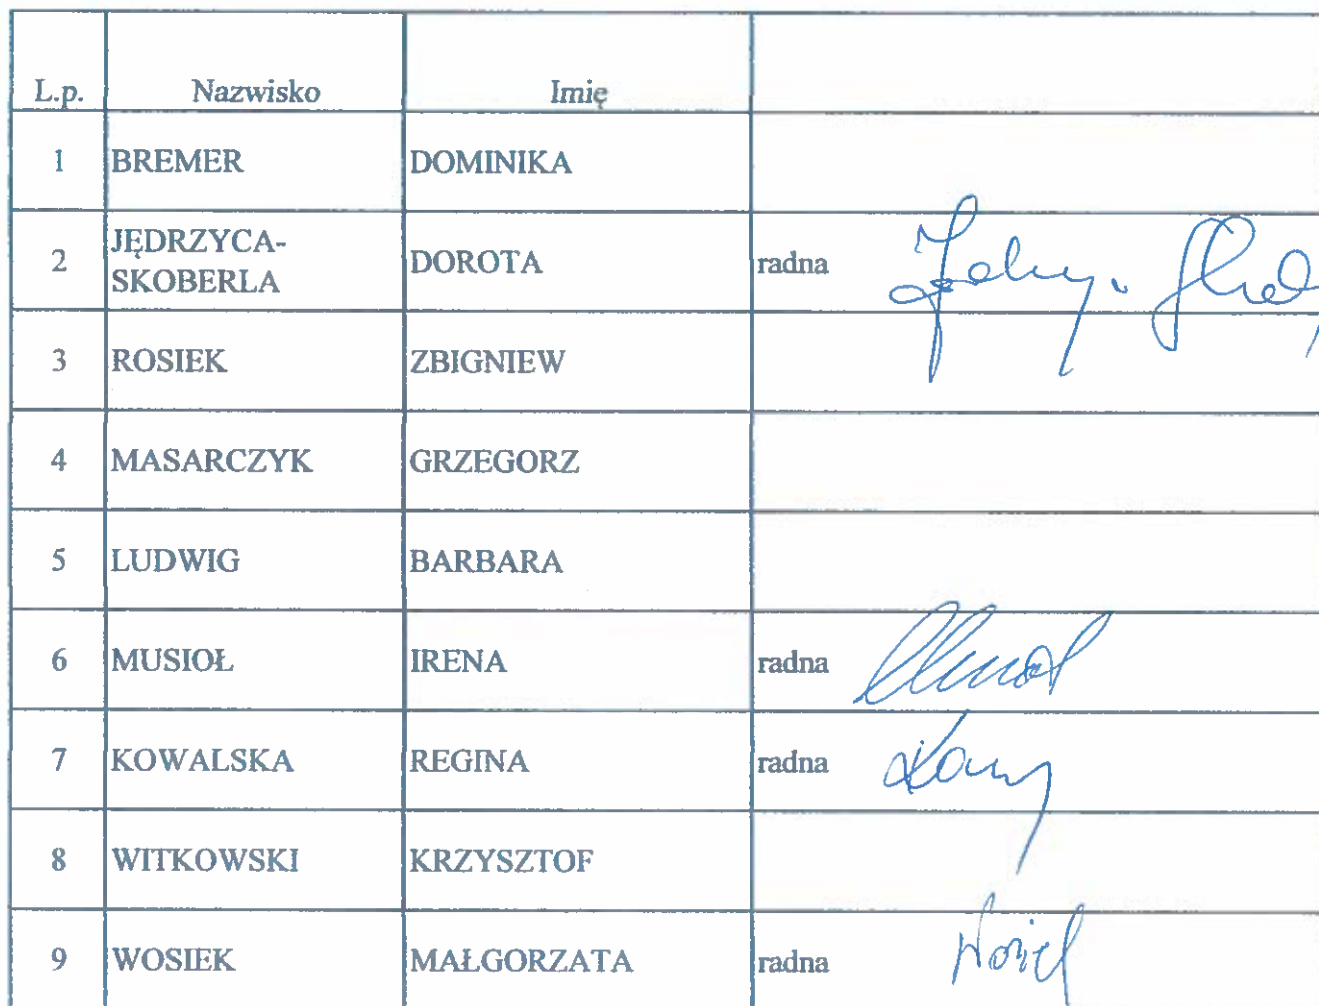 L.p. Nazwisko Imię
1 BREMER DOMINIKA
2 JĘDRZYCA-
SKOBERLA DOROTA radna
3 ROSIEK ZBIGNIEW
4 MASARCZYK GRZEGORZ
5 LUDWIG BARBARA
6 MUSIOŁ IRENA radna
7 KOWALSKA REGINA radna
8 WITKOWSKI KRZYSZTOF
9 WOSIEK MAŁGORZATA radna